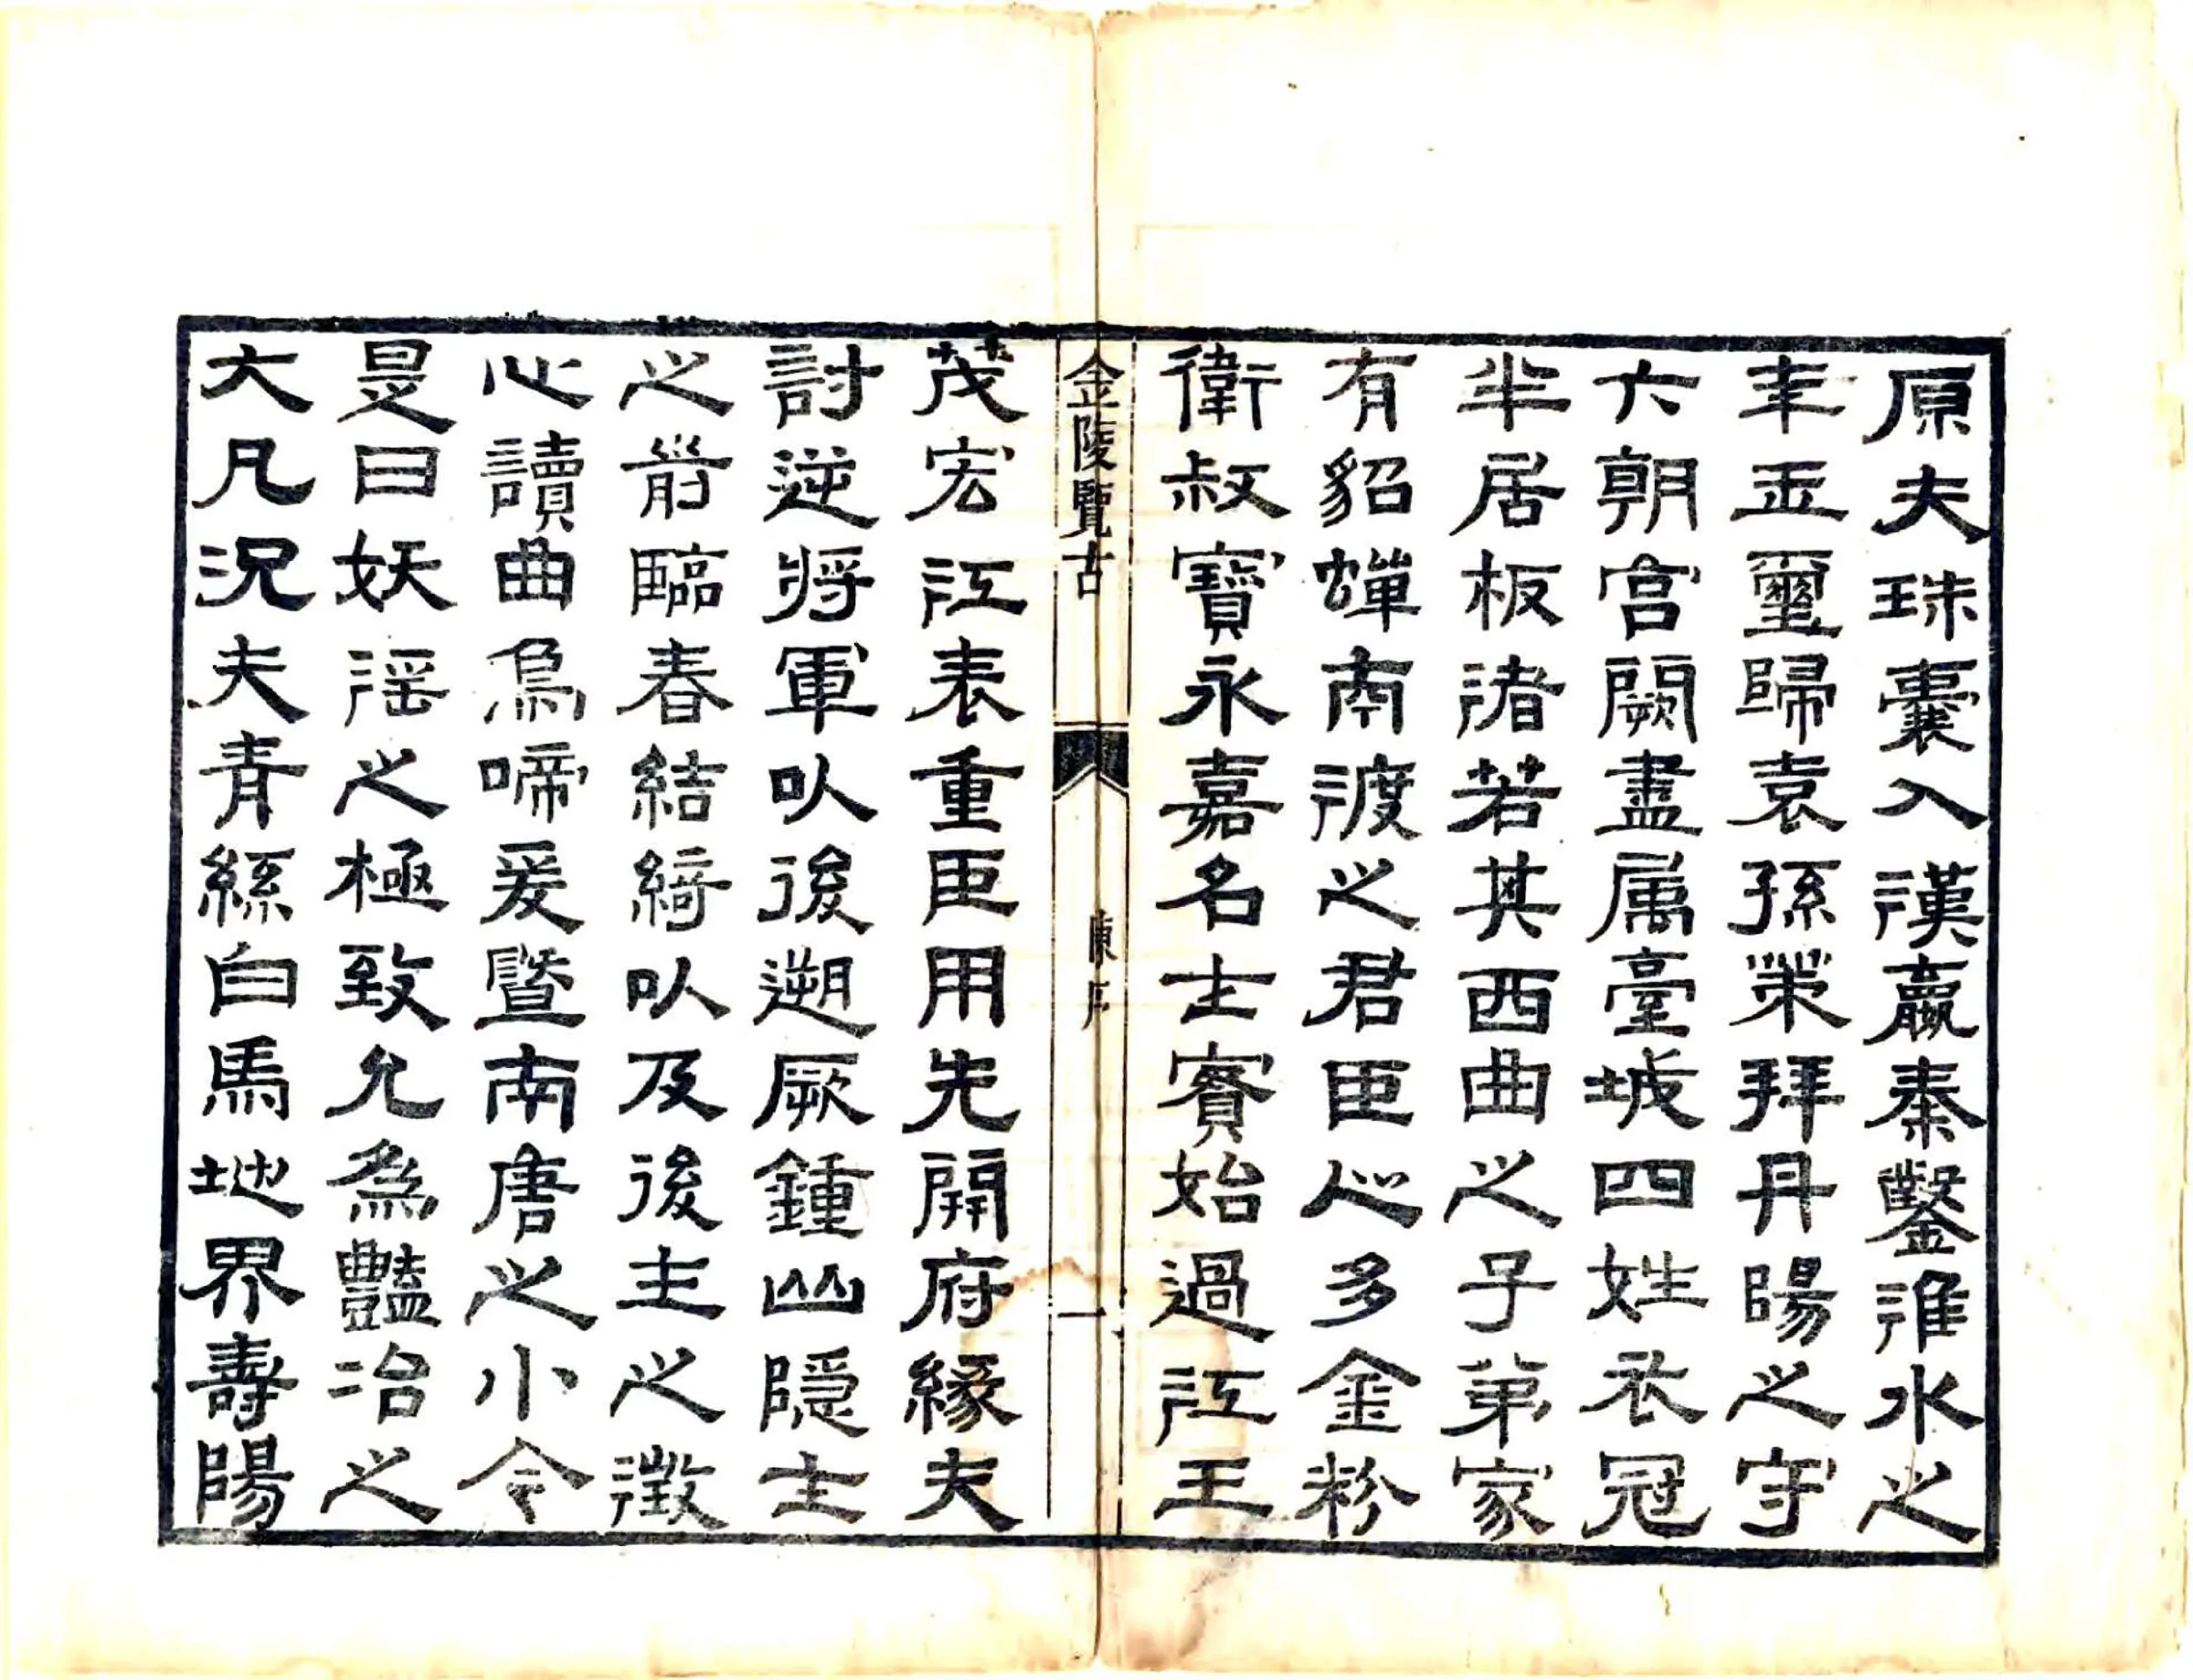 原夫珠囊入漢嬴秦鑿淮水之
年玉璽歸袁孫策拜丹陽之守
六朝宫闕盡属臺城四姓衣冠
半居板渚若其西曲之子弟家
有貂蟬南渡之君臣心多金粉
衛叔寶永嘉名士賓始過江王
茂宏江表重臣用先開府緣夫
討逆將軍以後遡厥鍾山隱士
之前臨春結綺以及後主之徵
心讀曲烏啼爰暨南唐之小令
是曰妖滛之極致允為豔冶之
大凡況夫青絲白馬地界壽陽
金陵覽古
陳序
一